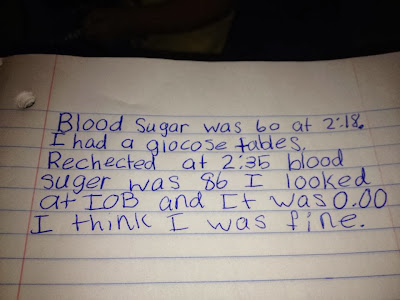 Blood Sugar was 60 at 2:18.
I had a glocose tables.
Rechected at 2:35 blood
suger was 86 I looked
at IOB and It was 0.00
I think I was fine.